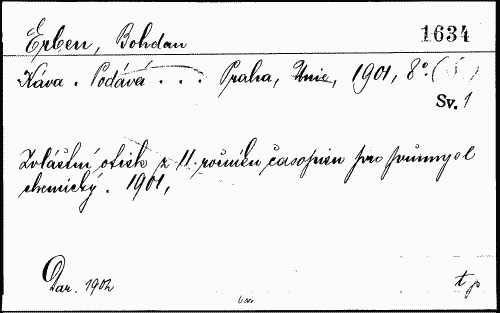 Erben, Bohdan 1634
Káva. Podává . . . Praha, Unie, 1901, 8° (5)
Sv. 1
Zvláštní otisk z 11. ročníku časopisu pro průmysl
chemický. 1901,
Dar. 1902 tp